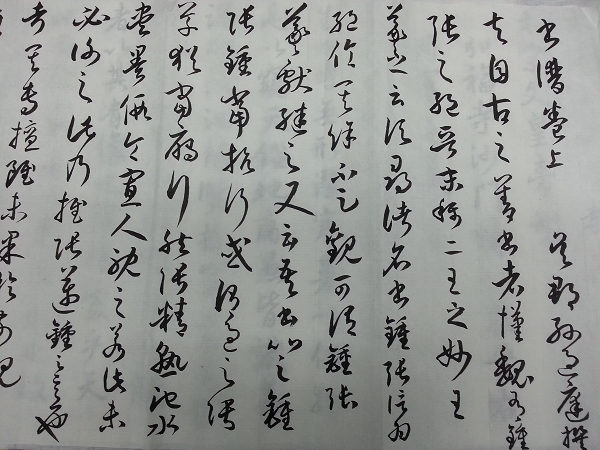 書譜卷上 吳郡孫過庭撰
夫自古之善書者漢魏有鍾
張之絕晉末稱二王之妙王
羲之云頃尋諸名書鍾張信為
絕倫其餘不足觀可謂鍾張
羲獻繼之又云吾書比之鍾
張鍾當抗行或謂過之張
草猶當雁行然張精熟池水
盡墨假令寡人耽之若此未
必謝之此乃推張邁鍾之意也
考其專擅雖未果於前規